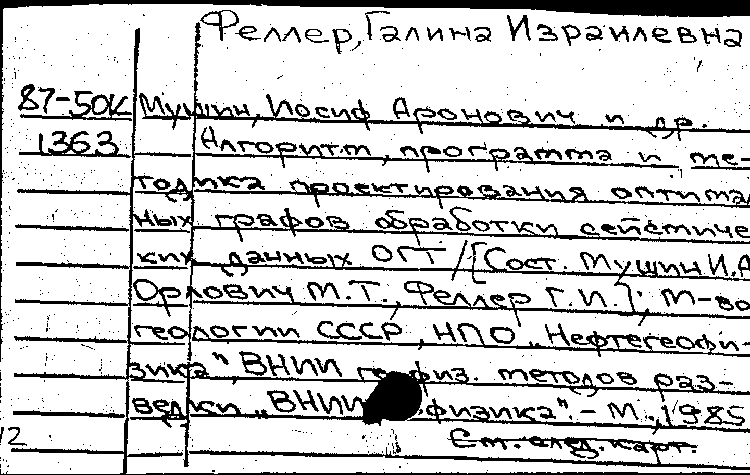 Феллер, Галина Израилевна
87-50К Мушин, Иосиф Аронович и др.
1363 Алгоритм, программа и ме-
тодика проектирования оптимал
ных графов обработки сейсмиче
ких данных ОГТ / [Сост. Мушин И.А
Орлович М.Т., Феллер Г.И.]; М-во
геологии СССР, НПО „Нефтегеофи-
зика", ВНИИ геофиз. методов раз-
ведки „ВНИИ физика". - М., 1985
См. след. карт.
12